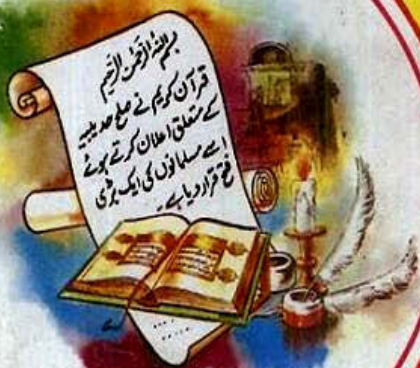 بسم اللہ الرحمن الرحیم
قرآن کریم نے صلح حدیبیہ
کے متعلق اعلان کرتے ہوئے
اسے مسلمانوں کی ایک بڑی
فتح قرار دیا ہے۔